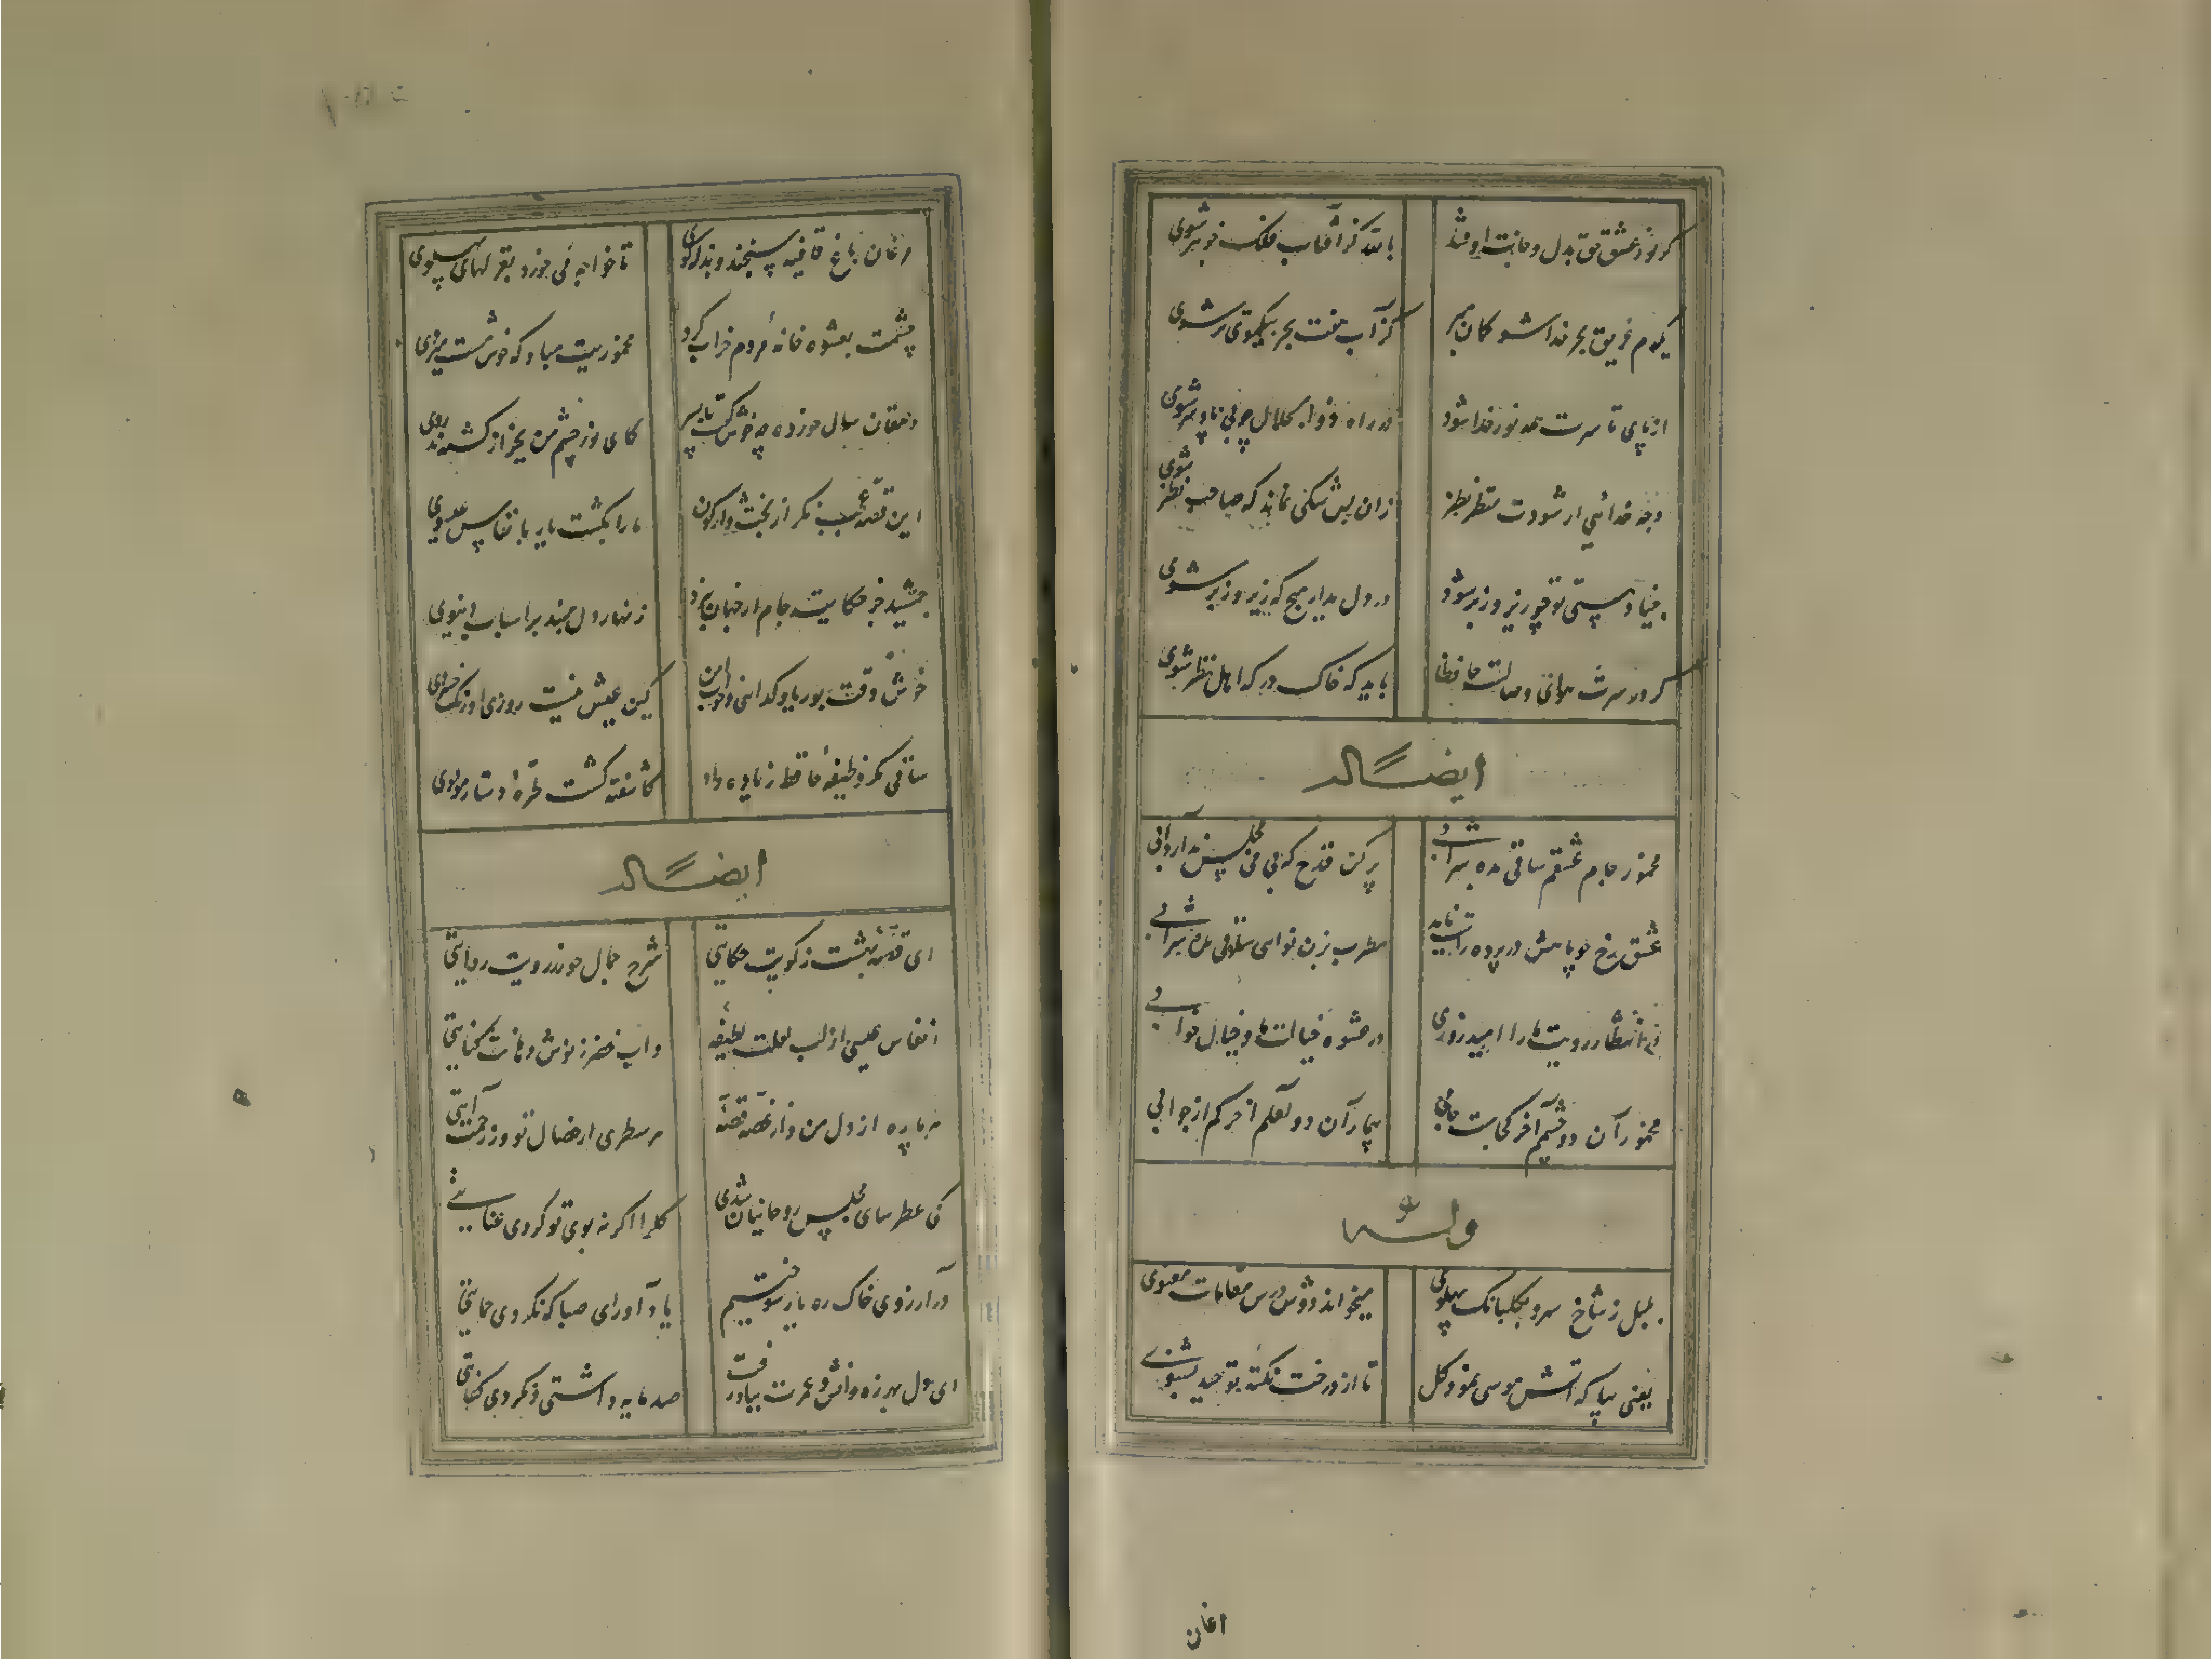 کر نور عشق حق بدل و جانت اوفتد بالله کز آفتاب فلک خوبتر شوی
یکدم غریق بحر خدا شو گمان مبر کز آب هفت بحر بیکموی تر شوی
از پای تا سرت همه نور خدا شود در راه ذوالجلال چو بی پا و سر شوی
وجه خدائی ار شودت منظر نظر زان پس شکی نماند که صاحب نظر شوی
بنیاد هستی تو چو زیر و زبر شود در دل مدار هیچ که زیر و زبر شوی
کر در سرت هوای وصالست حافظا باید که خاک درکه اهل نظر شوی
ایضاً له
مخمور جام عشقم ساقی بده شرابی پر کن قدح که بی می مجلس ندارد آبی
عشق رخ چو ماهش در پرده راست ناید مطرب بزن نوای ساقی بده شرابی
در انتظار رویت ما را امیدواری در عشوه خیالت ما و خیال خوابی
مخمور آن دو چشم آخر کجاست جامی بیمار آن دو لعلم آخر کم از جوابی
وله
بلبل ز شاخ سرو بکلبانک پهلوی میخواند دوش درس مقامات معنوی
یعنی بیا که آتش موسی نمود کل تا از درخت نکته توحید بشنوی
اغان
مرغان باغ قافیه سنجند و بذله کوی تا خواجه می خورد بغزلهای پهلوی
چشمت بعشوه خانهٔ مردم خراب کرد مخموریت مباد که خوش مست میروی
دهقان سال خورده چه خوش کفت با پسر کای نور چشم من بجز از کشته ندروی
این قصه عجب نکر از بخت واژکون ما را بکشت یار بانفاس عیسوی
جمشید جز حکایت جام از جهان نبرد زنهار دل مبند بر اسباب دنیوی
خوش وقت بوریا و کدائی و خواب امن کین عیش نیست روزی اورنک خسروی
ساقی مکر وظیفهٔ حافظ زیاده داد کاشفته کشت طرهٔ دستار مولوی
ایضاً له
ای قصهٔ بهشت ز کویت حکایتی شرح جمال حور ز رویت روایتی
انفاس عیسی از لب لعلت لطیفهٔ و آب خضر ز نوش دهانت کنایتی
هر پاره از دل من و از غصه قصهٔ هر سطری از خصال تو و ز رحمت آیتی
کی عطرسای مجلس روحانیان شدی کل را اکر نه بوی تو کردی عنایتی
در آرزوی خاک ره یار سوختیم یاد آور ای صبا که نکردی حمایتی
ای دل بهرزه دانش و عمرت بباد رفت صد مایه داشتی و نکردی کفایتی